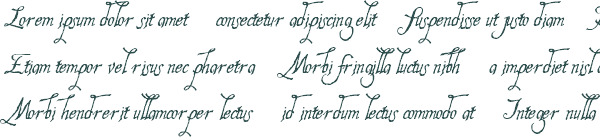 Lorem ipsum dolor sit amet consectetur adipiscing elit Suspendisse ut justo diam
Etiam tempor vel risus nec pharetra Morbi fringilla luctus nibh a imperdiet nisl
Morbi hendrerit ullamcorper lectus id interdum lectus commodo at Integer nulla